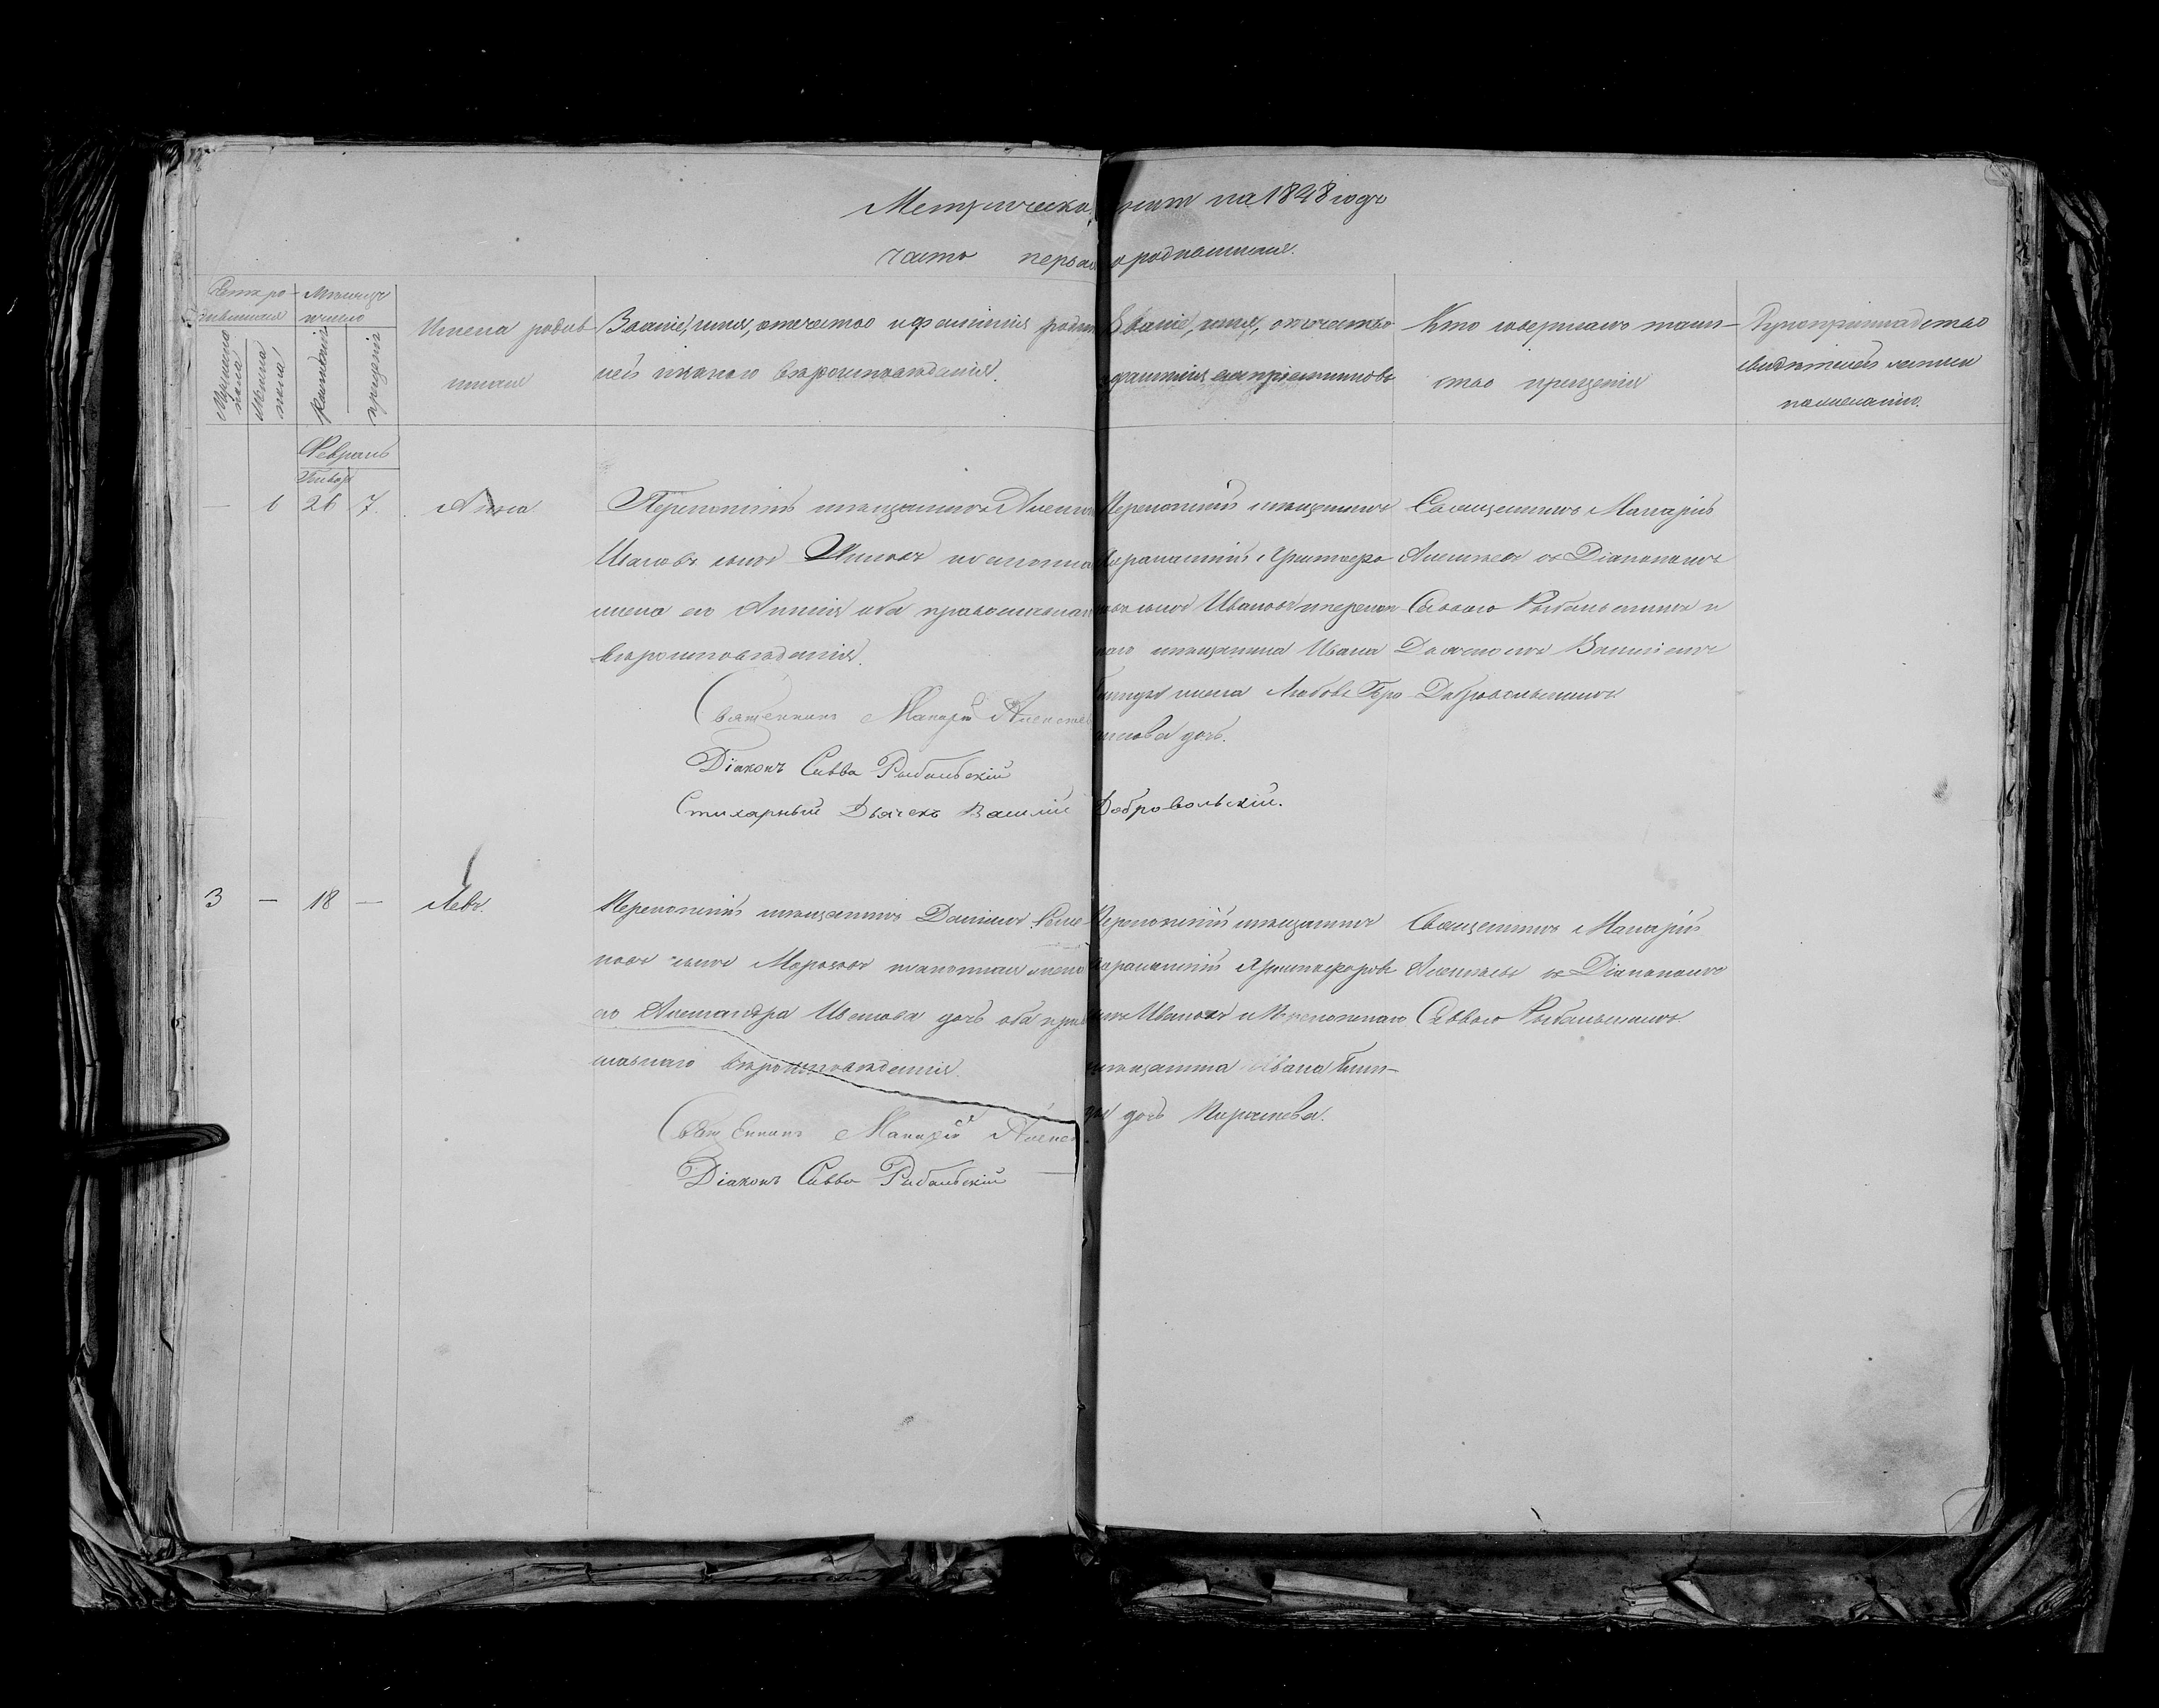 Метрическа книги на 1848 годъ
часть первая о родившихся.
Счетъ ро-
дившихся
Мѣсяцъ
число
Мужеска
пола
Женска
пола
рожденія
крещенія
Имена родив
шихся
Званіе, имя, отчество и фамилія родит
лей и какого вѣроисповѣданія.
Званіе, имя, отчество
фамилія воспріемниковъ
Кто совершалъ таин-
ство крещенія
Рукоприкладство
свидѣтелей записи
по желанію.
Февраль
Генвар
— 1 26 7. Анна
Перекопскій мѣщанинъ
Ивановъ сынъ и законна
жена его оба православна
вѣроисповѣданія.
Священникъ Макарій Алексѣев
Діаконъ Савва Рыбальскій
Стихарный Дьячекъ Василій Добровольскій.
Перекопскій мѣщанинъ
сынъ Ивановъ и перекоп
скаго мѣщанина Ивана
жена Любовь
дочь.
Священникъ Макарій
Алексѣевъ съ Діакономъ
Саввою Рыбальскимъ и
Дьячкомъ Василіемъ
Добровольскимъ
3 — 18 — Левъ.
Перекопскій мѣщанинъ Даніилъ
сынъ Морозовъ и законная жена
его Александра дочь оба прав
славнаго вѣроисповѣданія.
Священникъ Макарій Алексѣ
Діаконъ Савва Рыбальскій
Перекопскій мѣщанинъ
Ивановъ и Перекопскаго
мѣщанина Ивана
дочь
Священникъ Макарій
Алексѣевъ съ Діакономъ
Саввою Рыбальскимъ.